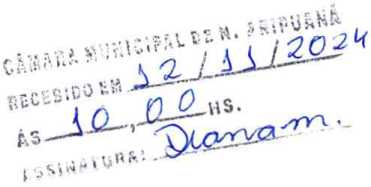 CÂMARA MUNICIPAL DE N. ARIPUANÃ
RECEBIDO EM 12/11/2024
ÀS 10,00 HS.
ASSINATURA: Dianam.